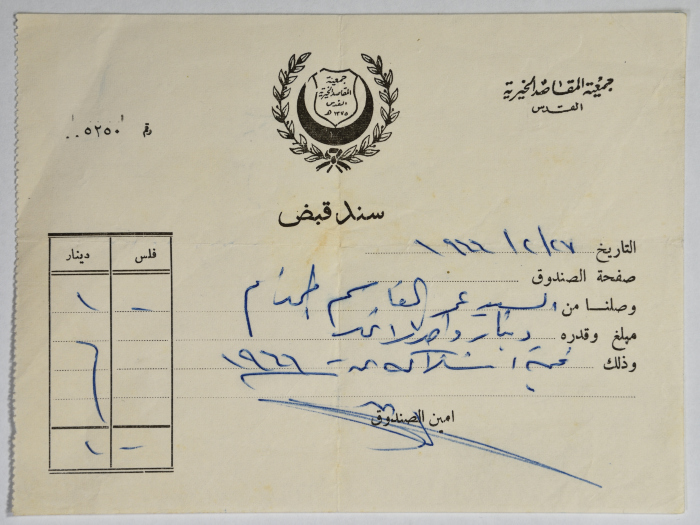 جمعية المقاصد الخيرية
القدس
جمعية
المقاصد الخيرية
القدس
١٣٧٥ هـ
رقم ٥٢٥٠
سند قبض
التاريخ ٢٧/٢/١٩٦٦
صفحة الصندوق
وصلنا من السيد عمر القاسم
مبلغ وقدره دينار واحد لا غير
وذلك قيمة اشتراكه عن سنة ١٩٦٦
فلس دينار
- ١
- ١
امين الصندوق